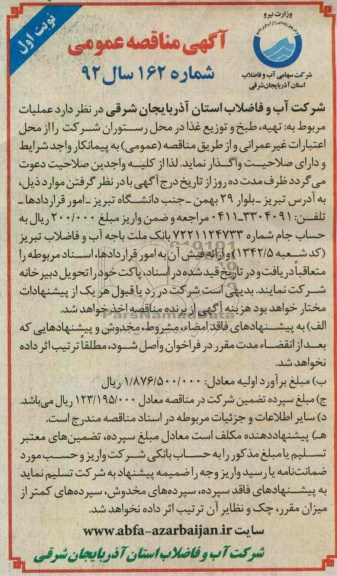 نوبت اول
وزارت نیرو
شرکت سهامی آب و فاضلاب
استان آذربایجان شرقی
آگهی مناقصه عمومی
شماره ۱۶۲ سال ۹۲
شرکت آب و فاضلاب استان آذربایجان شرقی در نظر دارد عملیات
مربوط به: تهیه، طبخ و توزیع غذا در محل رستوران شرکت را از محل
اعتبارات غیرعمرانی و از طریق مناقصه (عمومی) به پیمانکار واجد شرایط
و دارای صلاحیت واگذار نماید. لذا از کلیه واجدین صلاحیت دعوت
می گردد ظرف مدت ده روز از تاریخ درج آگهی با در نظر گرفتن موارد ذیل،
به آدرس تبریز ـ بلوار ۲۹ بهمن ـ جنب دانشگاه تبریز ـ امور قراردادها ـ
تلفن: ۳۳۰۴۰۹۱-۰۴۱۱ مراجعه و ضمن واریز مبلغ ۲۰۰/۰۰۰ ریال به
حساب جام شماره ۷۲۲۱۱۲۴۷۳۳ بانک ملت باجه آب و فاضلاب تبریز
(کد شعبه ۱۳۴۲/۵) و ارائه فیش آن به امور قراردادها، اسناد مربوطه را
متعاقباً دریافت و در تاریخ قید شده در اسناد، پاکت خود را تحویل دبیرخانه
شرکت نمایند. بدیهی است شرکت در رد یا قبول هر یک از پیشنهادات
مختار خواهد بود هزینه آگهی از برنده مناقصه اخذ خواهد شد.
الف) به پیشنهادهای فاقد امضاء، مشروط، مخدوش و پیشنهادهایی که
بعد از انقضاء مدت مقرر در فراخوان واصل شود، مطلقاً ترتیب اثر داده
نخواهد شد.
ب) مبلغ برآورد اولیه معادل: ۱/۸۷۶/۵۰۰/۰۰۰ ریال
ج) مبلغ سپرده تضمین شرکت در مناقصه معادل ۱۲۳/۱۹۵/۰۰۰ ریال می‌باشد.
د) سایر اطلاعات و جزئیات مربوطه در اسناد مناقصه مندرج است.
هـ) پیشنهاددهنده مکلف است معادل مبلغ سپرده، تضمین‌های معتبر
تسلیم یا مبلغ مذکور را به حساب بانکی شرکت واریز و حسب مورد
ضمانت‌نامه یا رسید واریز وجه را ضمیمه پیشنهاد به شرکت تسلیم نماید
به پیشنهادهای فاقد سپرده، سپرده‌های مخدوش، سپرده‌های کمتر از
میزان مقرر، چک و نظایر آن ترتیب اثر داده نخواهد شد.
سایت www.abfa-azarbaijan.ir
شرکت آب و فاضلاب استان آذربایجان شرقی